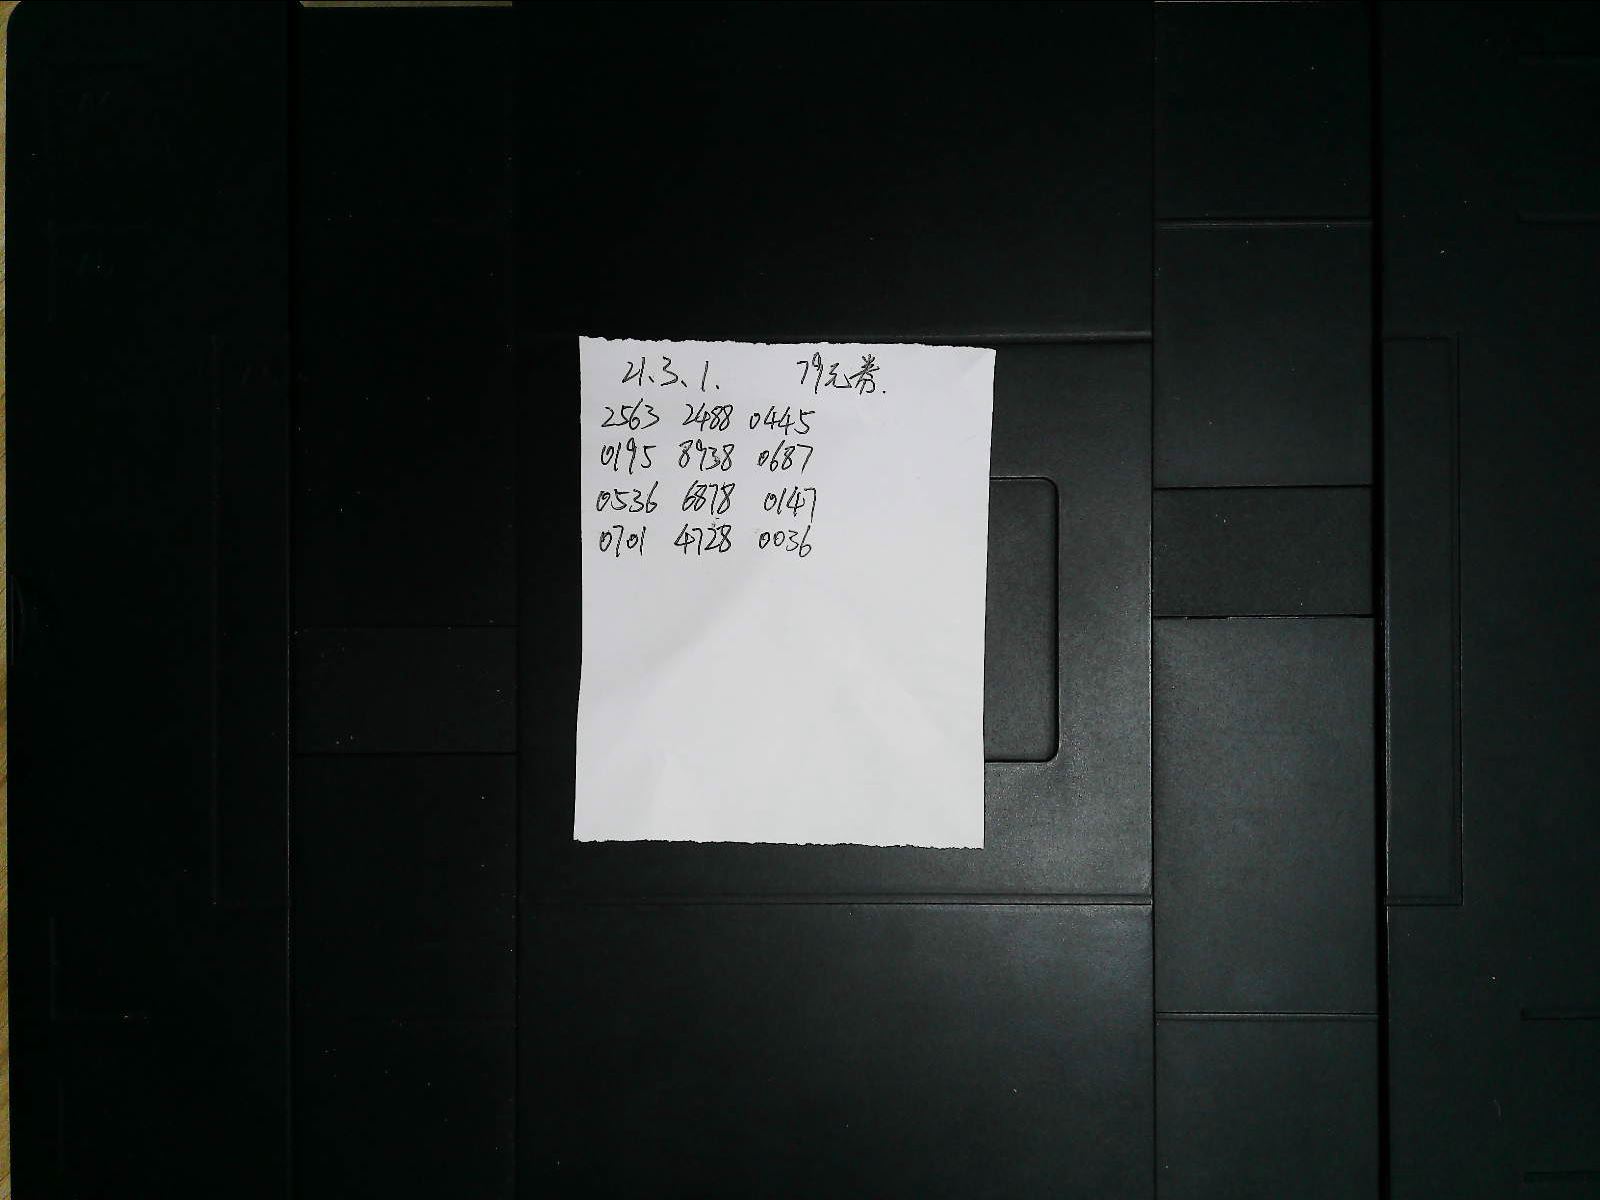 21.3.1. 79元券.
2563 2488 0445
0195 8938 0687
0536 6878 0147
0701 4728 0036